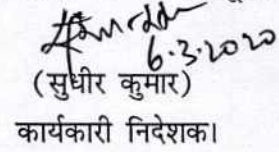 6.3.2020
(सुधीर कुमार)
कार्यकारी निदेशक।